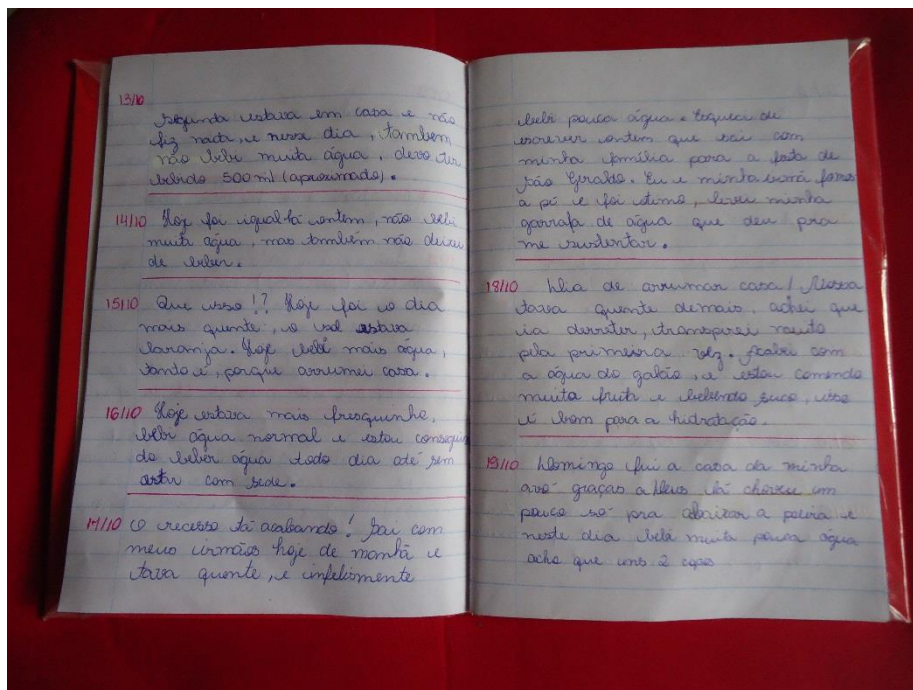 13/10
Segunda estava em casa e não
fiz nada, e nesse dia, também
não bebi muita água, devo ter
bebido 500 ml (aproximado).
14/10 Hoje foi igual tá ontem, não bebi
muita água, mas também não deixei
de beber.
15/10 Que isso!? Hoje foi o dia
mais quente, o sol estava
laranja. Hoje bebi mais água,
tando é, porque arrumei casa.
16/10 Hoje estava mais fresquinho,
bebi água normal e estou conseguin
do beber água todo dia até sem
estar com sede.
17/10 O recesso tá acabando! Sai com
meus irmãos hoje de manhã e
tava quente, e infelismente
bebi pouca água. Esqueci de
escrever ontem que sai com
minha família para a festa de
São Geraldo. Eu e minha irmã fomos
a pé e foi otimo, levei minha
garrafa de água que deu pra
me sustentar.
18/10 Dia de arrumar casa! Nossa
tava quente demais, achei que
ia derreter, transpirei muito
pela primeira vez. Acabei com
a água do galão, e estou comendo
muita fruta e bebendo suco, isso
é bom para a hidratação.
19/10 Domingo fui a casa da minha
avó graças a Deus lá choveu um
pouco só pra abaixar a poeira e
neste dia bebi muita pouca água
acho que uns 2 copos